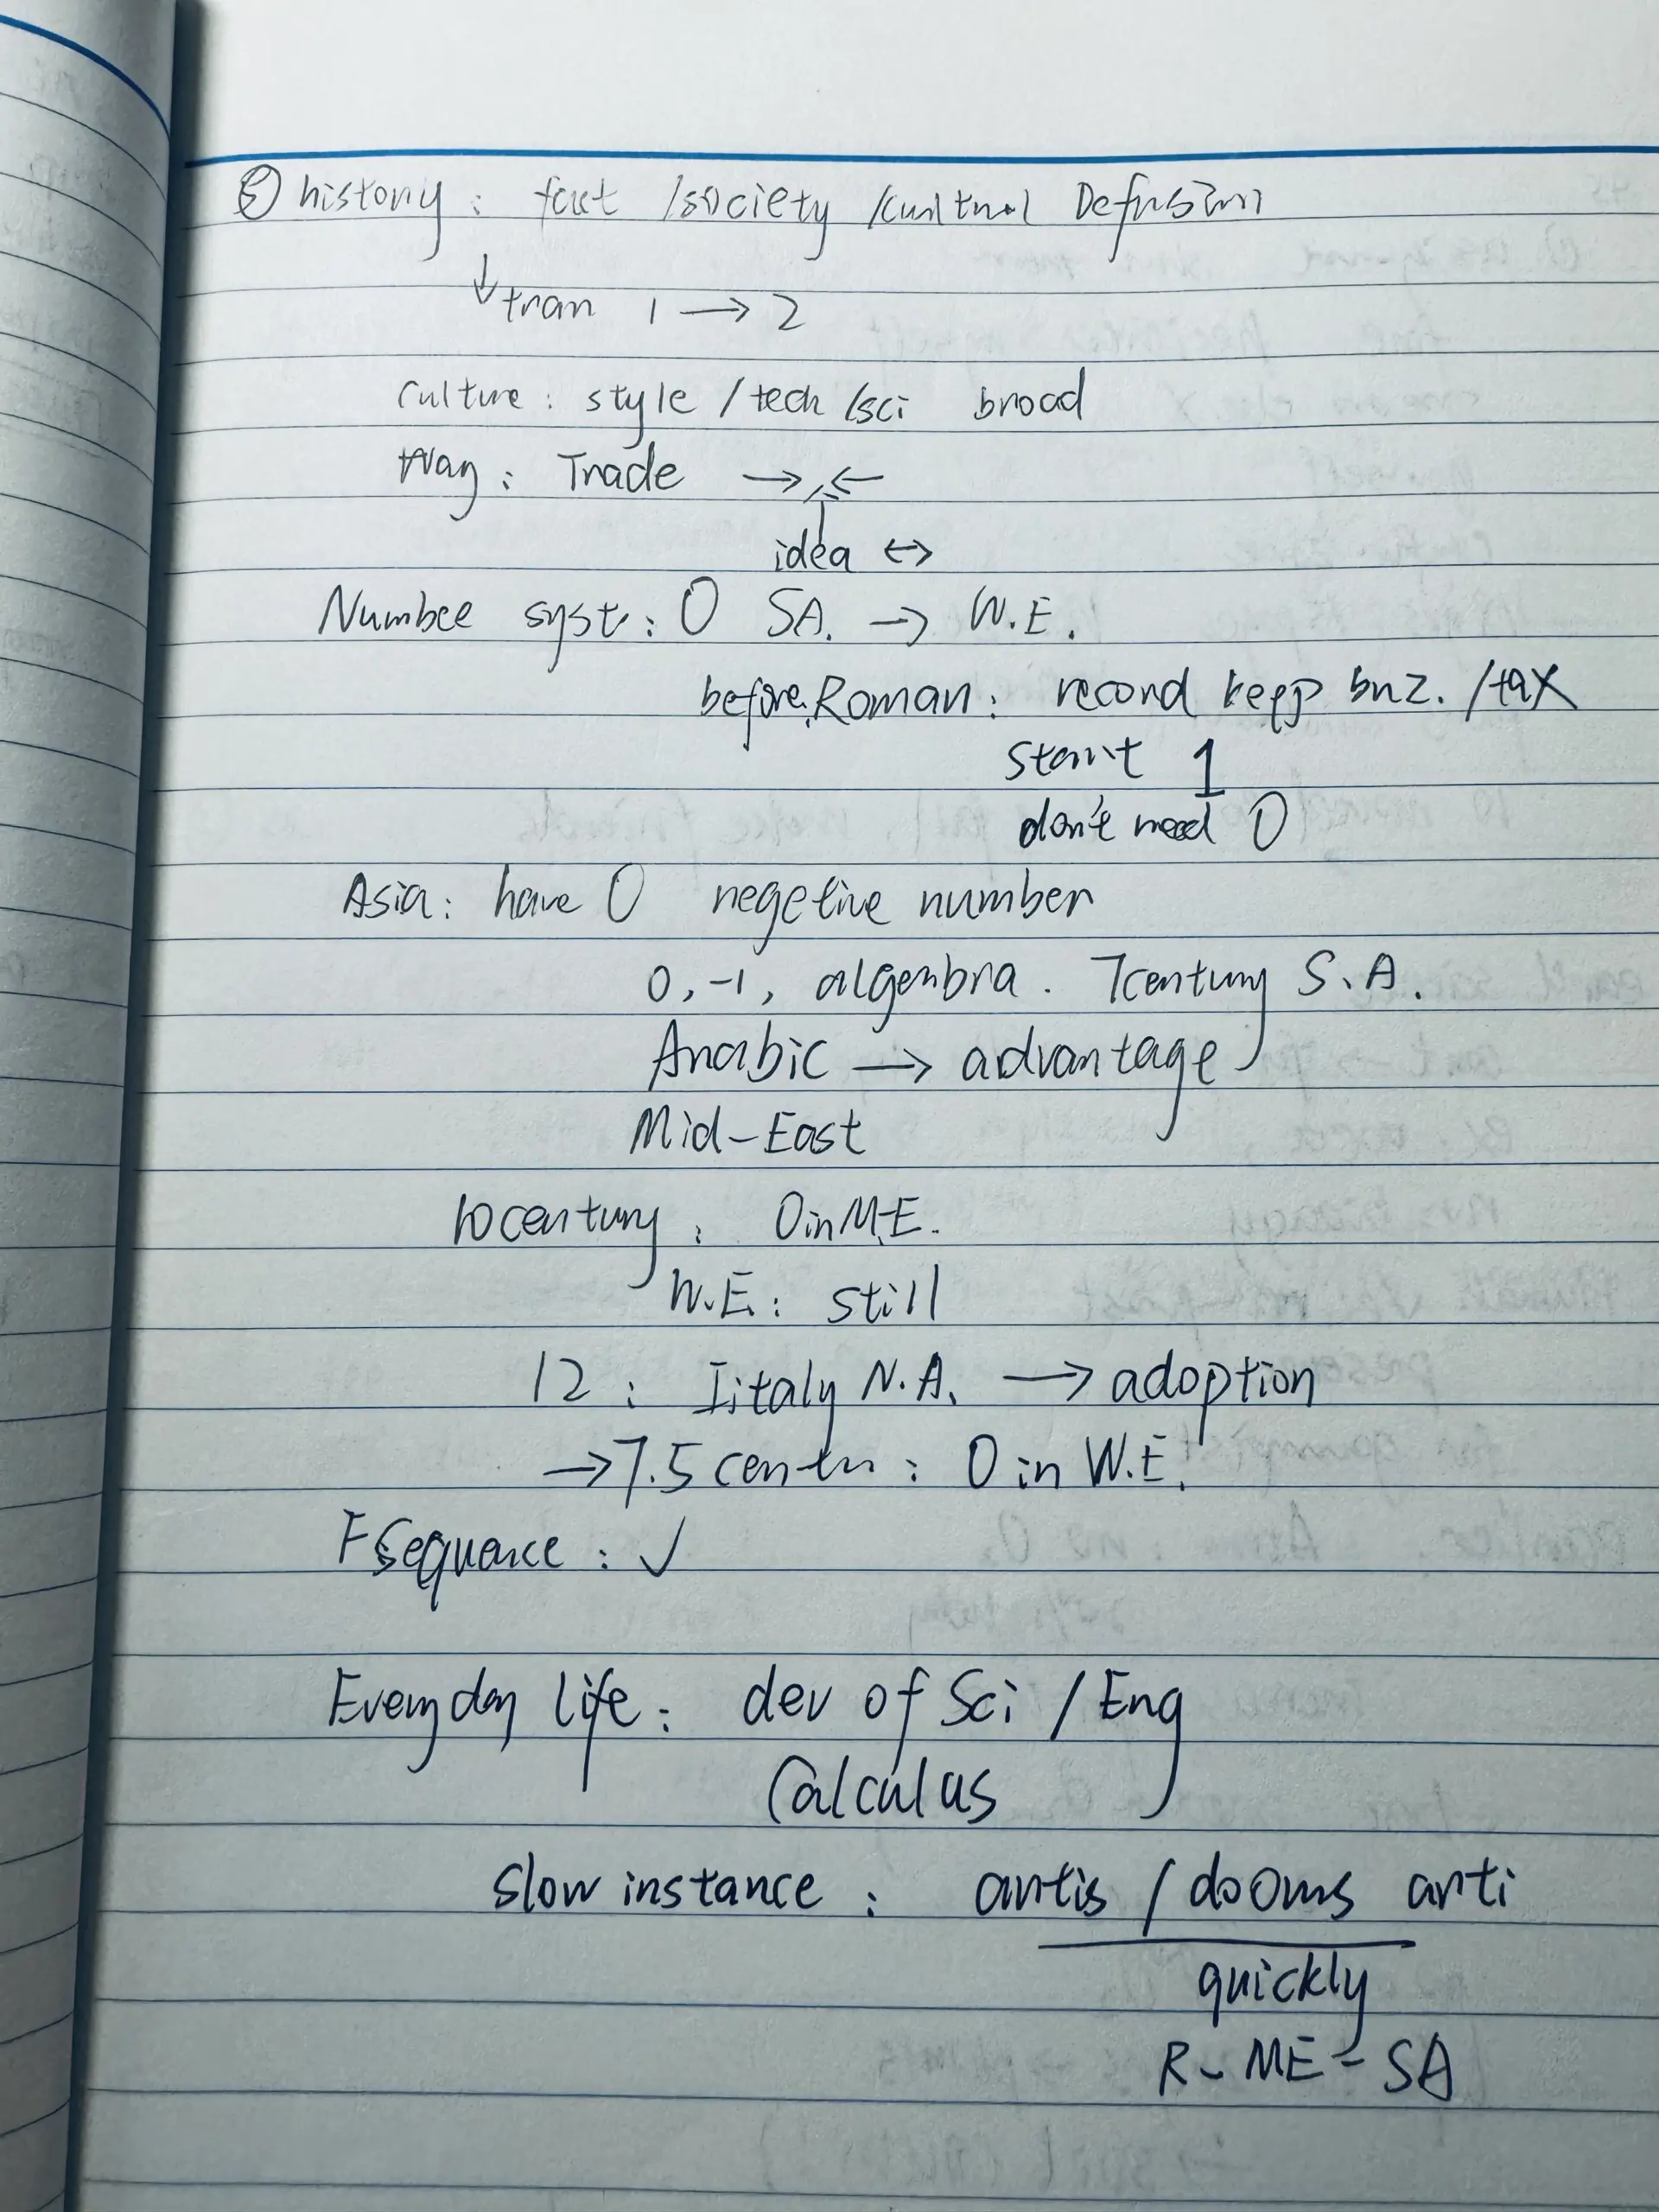 ⑤ history : fact /society /cultural Defusion
↓ tran 1 → 2
Culture : style / tech /sci broad
Way : Trade → ←
idea ↔
Numbee syst : 0 SA. → W.E.
before. Roman : record keep buz. /tax
start 1
don't need 0
Asia : have 0 negetive number
0, -1, algenbra. 7century S.A.
Arabic → advantage
Mid-East
10century : 0 in M.E.
W.E. : still
12 : Iitaly N.A. → adoption
→ 7.5 centu : 0 in W.E.
F Sequence : ✓
Everyday life : dev of Sci / Eng
Calculus
Slow instance : artis / dooms arti
quickly
R - ME - SA